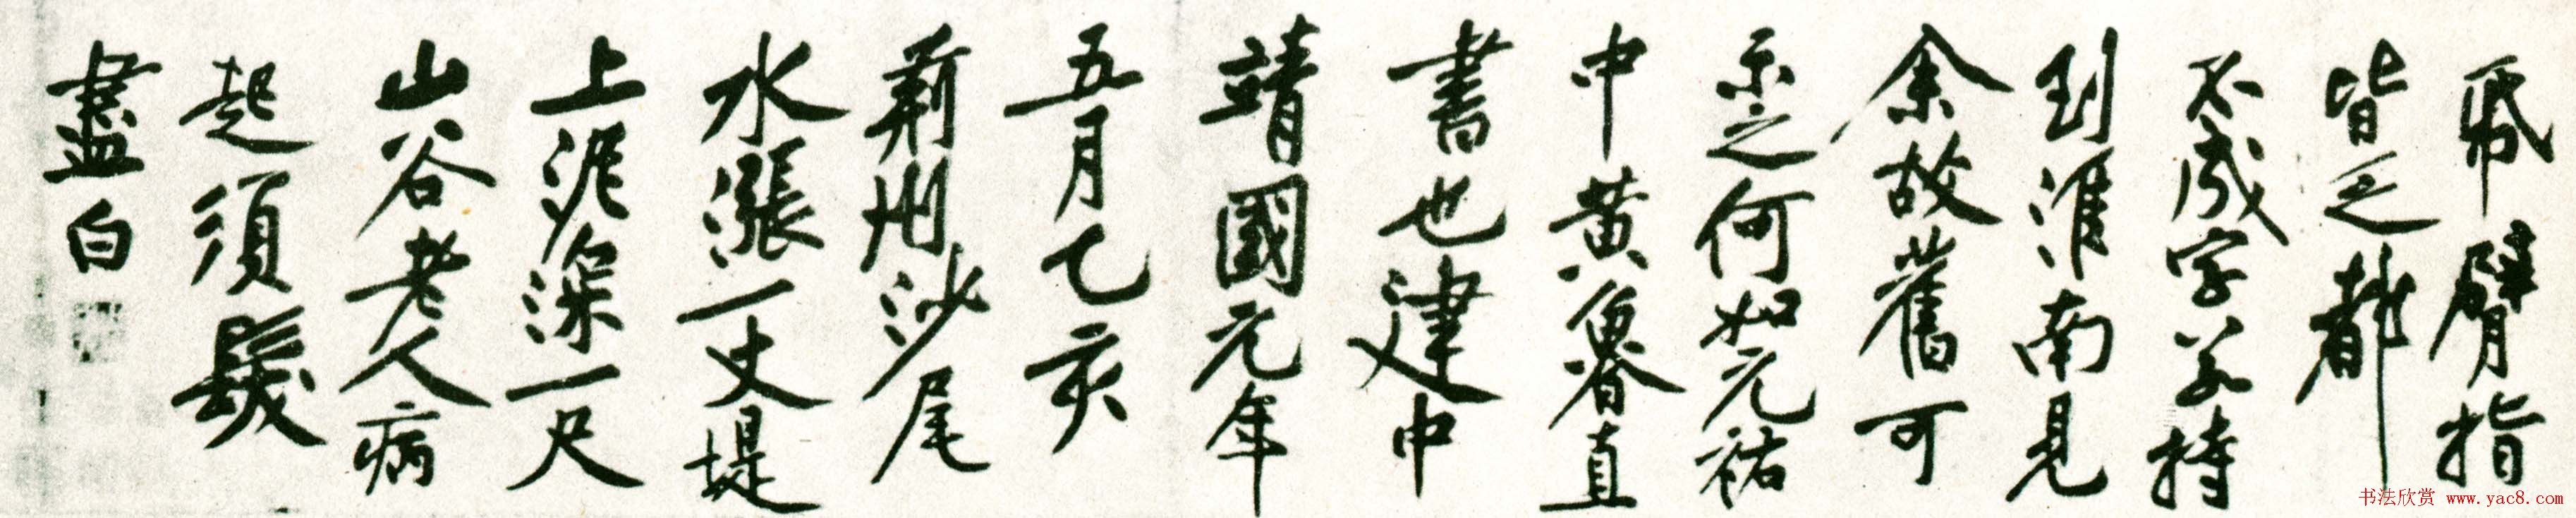 承臂指
皆乏都
不成字若持
到淮南見
余故舊可
示之何如元祐
中黄魯直
書也建中
靖國元年
五月乙亥
荊州沙尾
水漲一丈堤
上泥深一尺
山谷老人病
起須髮
盡白
书法欣赏 www.yac8.com